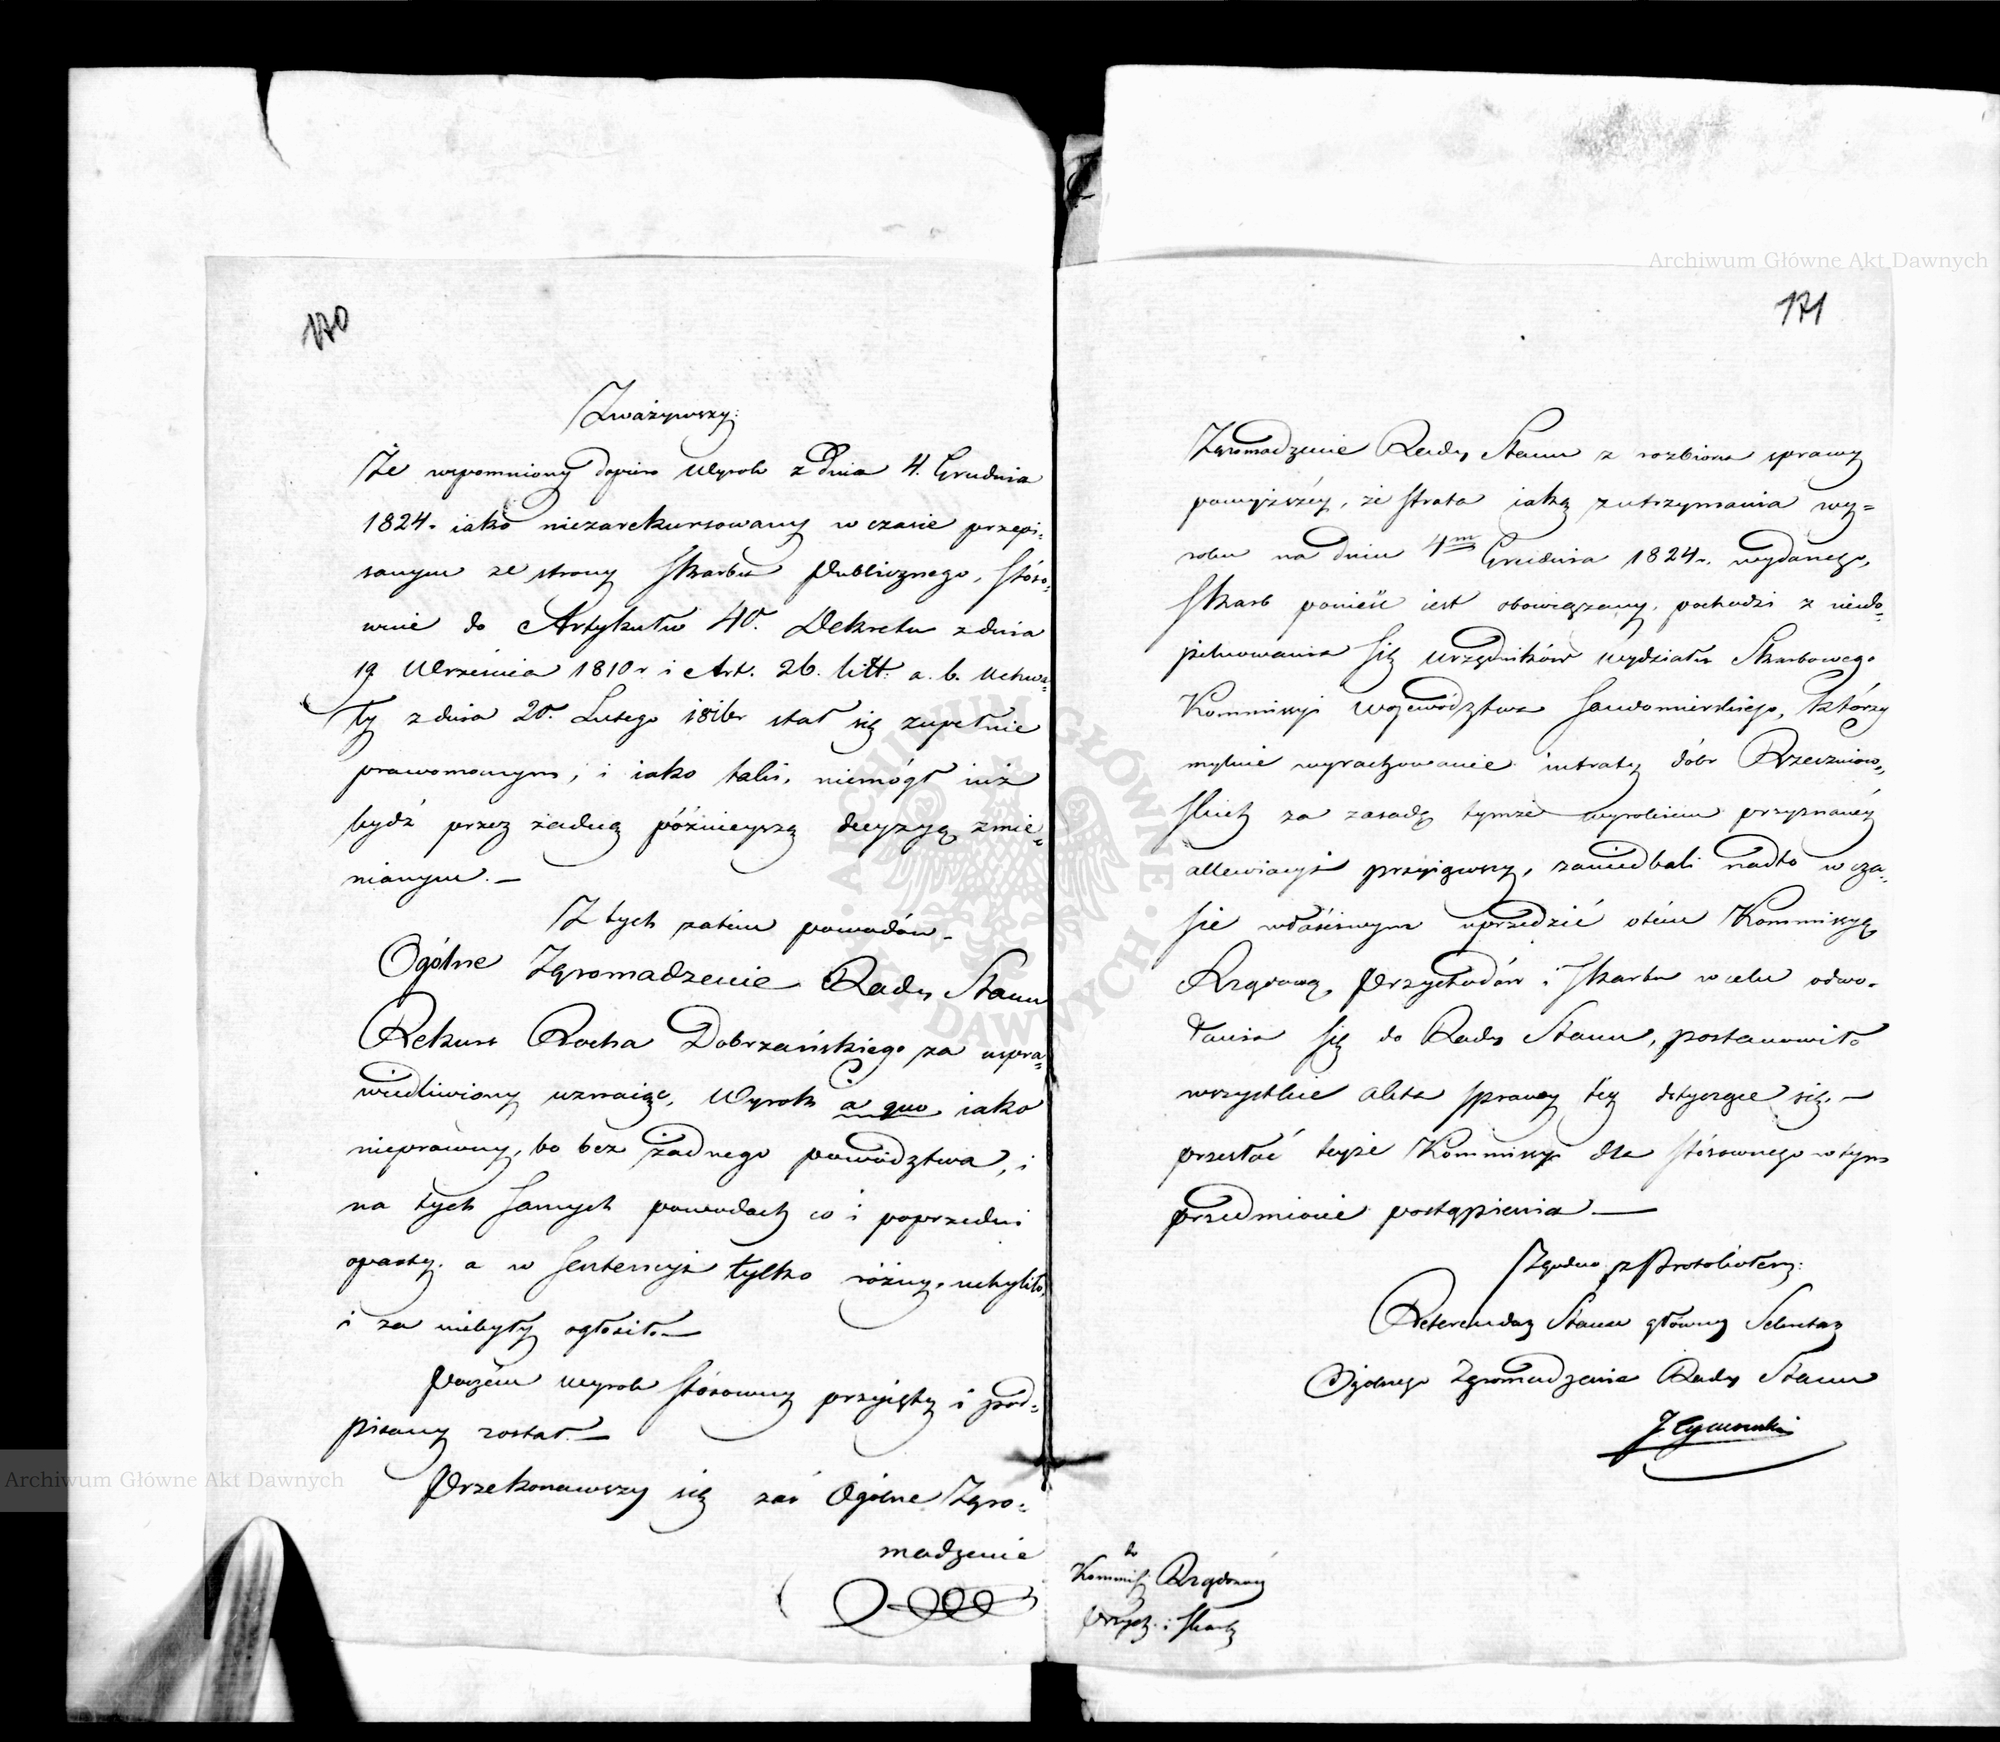 170
Zważywszy:
Że wspomniony dopiero Wyrok z Dnia 4. Grudnia
1824. iako niezarekursowany w czasie przepi-
sanym ze strony Skarbu Publicznego, stóso-
wnie do Artykułu 40. Dekretu z dnia
19 Września 1810 r i Art. 26. litt. a. b. Uchwa-
ły z dnia 20. Lutego 1816 r stał się zupełnie
prawomocnym, i iako talis, niemógł iuż
bydź przez żadną późnieyszą decyzyą zmie-
nianym. —
Z tych zatem powodów.
Ogólne Zgromadzenie Rady Stanu
Rekurs Rocha Dobrzańskiego za uspra-
wiedliwiony uznaiąc, Wyrok a quo iako
nieprawny, bo bez żadnego powództwa, i
na tych samych powodach co i poprzedni
oparty, a w sentencyi tylko różny, uchyliło,
i za niebyły ogłosiło —
Poczém wyrok stósowny przyięty i pod-
pisany został —
Przekonawszy się zaś Ogólne Zgro-
madzenie
171
Zgromadzenie Rady Stanu z rozbioru sprawy
powyższéy, że strata iaką z utrzymania wy-
roku na dniu 4m Grudnia 1824 r. wydanego,
Skarb ponieść iest obowiązany, pochodzi z niedo-
pilnowania się urzędników wydziału Skarbowego
Kommissyi Województwa Sandomierskiego, którzy
mylnie wyrachowanie intraty dóbr Rzeczniow-
skich za zasadę tymże wyrokiem przyznanéy
allewiacyi przyiąwszy, zaniedbali nadto w cza-
sie właściwym uprzedzić o tém Kommissyą
Rządową Przychodów i Skarbu w celu odwo-
łania się do Rady Stanu, postanowiło
wszystkie akta sprawy téy dotyczące się. —
przesłać teyże Kommissyi dla stósownego w tym
przedmiocie postąpienia —
Zgodno z Protokółem:
Referendarz Stanu główny Sekretarz
Ogólnego Zgromadzenia Rady Stanu
do
Kommissyi Rządowéy
Przych. i Skarbu
Archiwum Główne Akt Dawnych
Archiwum Główne Akt Dawnych
ARCHIWUM GŁÓWNE AKT DAWNYCH